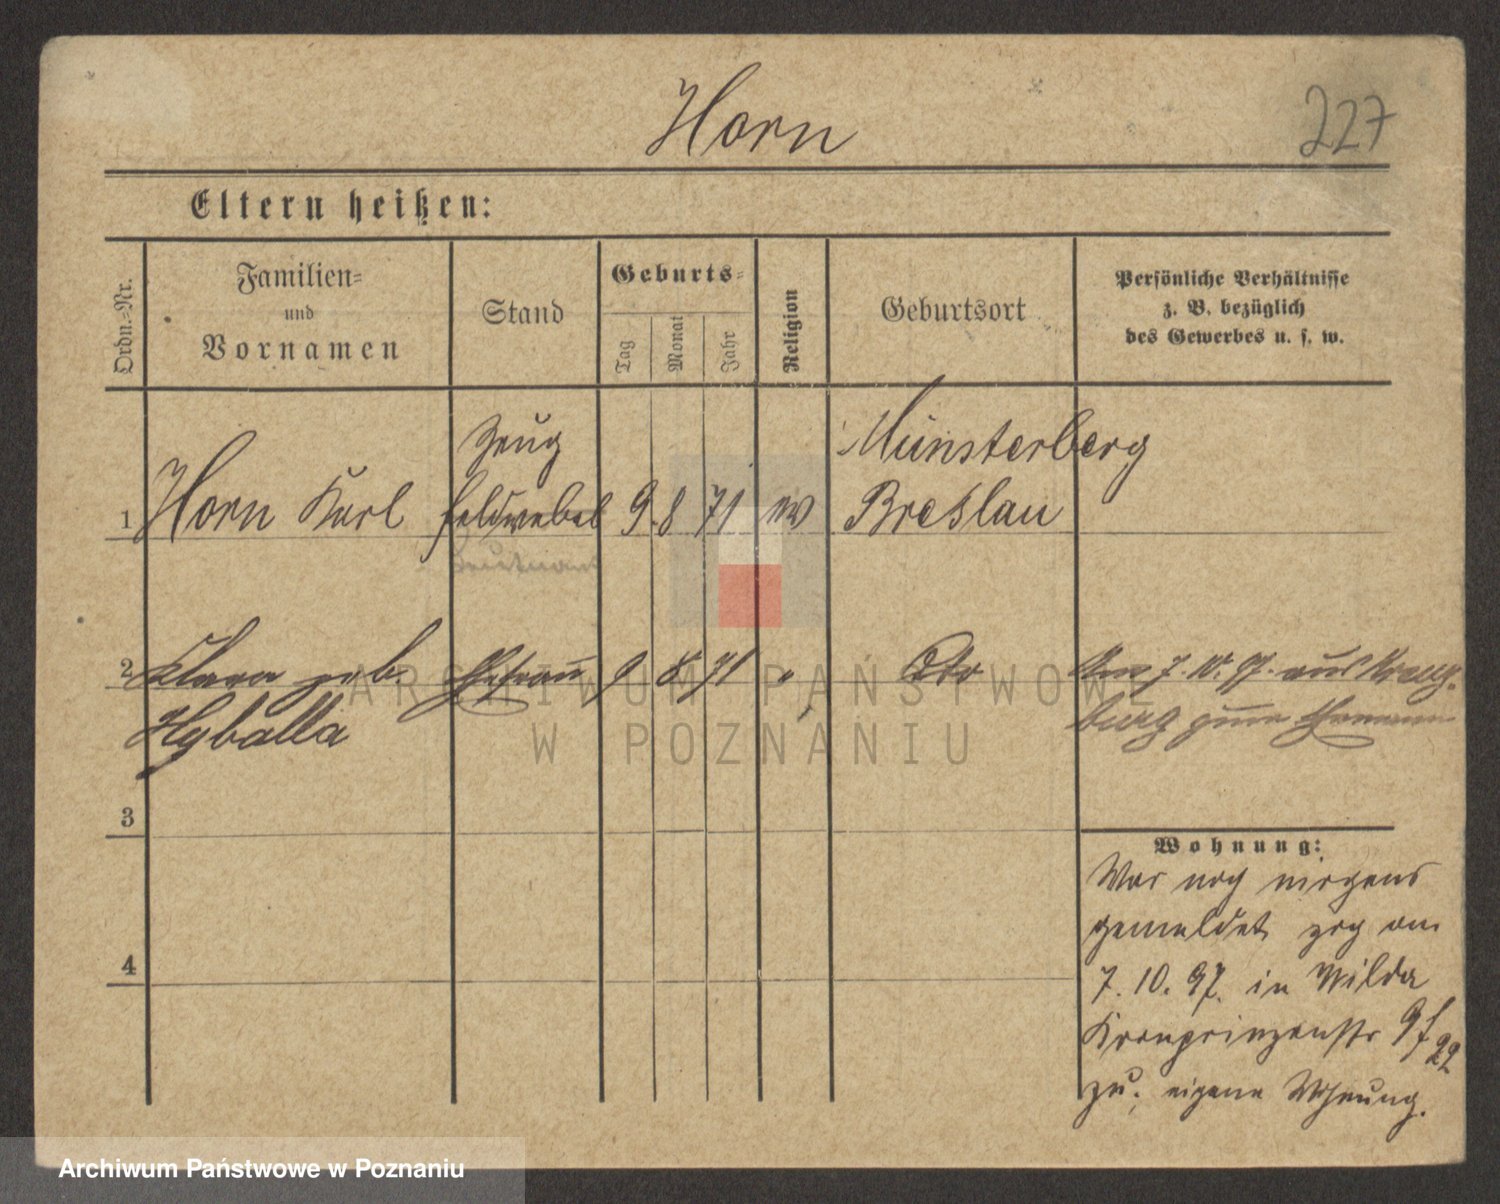 Horn
227
Eltern heißen:
Ordn.-Nr.
Familien-
und
Vornamen
Stand
Geburts-
Tag
Monat
Jahr
Religion
Geburtsort
Persönliche Verhältnisse
z. B. bezüglich
des Gewerbes u. s. w.
Zeug
Münsterberg
1 Horn Karl feldwebel 9. 8 71 ev Breslau
Leutnant
2 Clara geb. Ehefrau 9 8 71 " dto Am 7. 10. 97. aus Kreuz-
Hyballa
burg zum Ehemann
3
4
Wohnung:
War noch nirgens
gemeldet zog am
7. 10. 97. in Wilda
Kronprinzenstr 9f
22
zu; eigene Wohnung.
ARCHIWUM PAŃSTWOWE
W POZNANIU
Archiwum Państwowe w Poznaniu